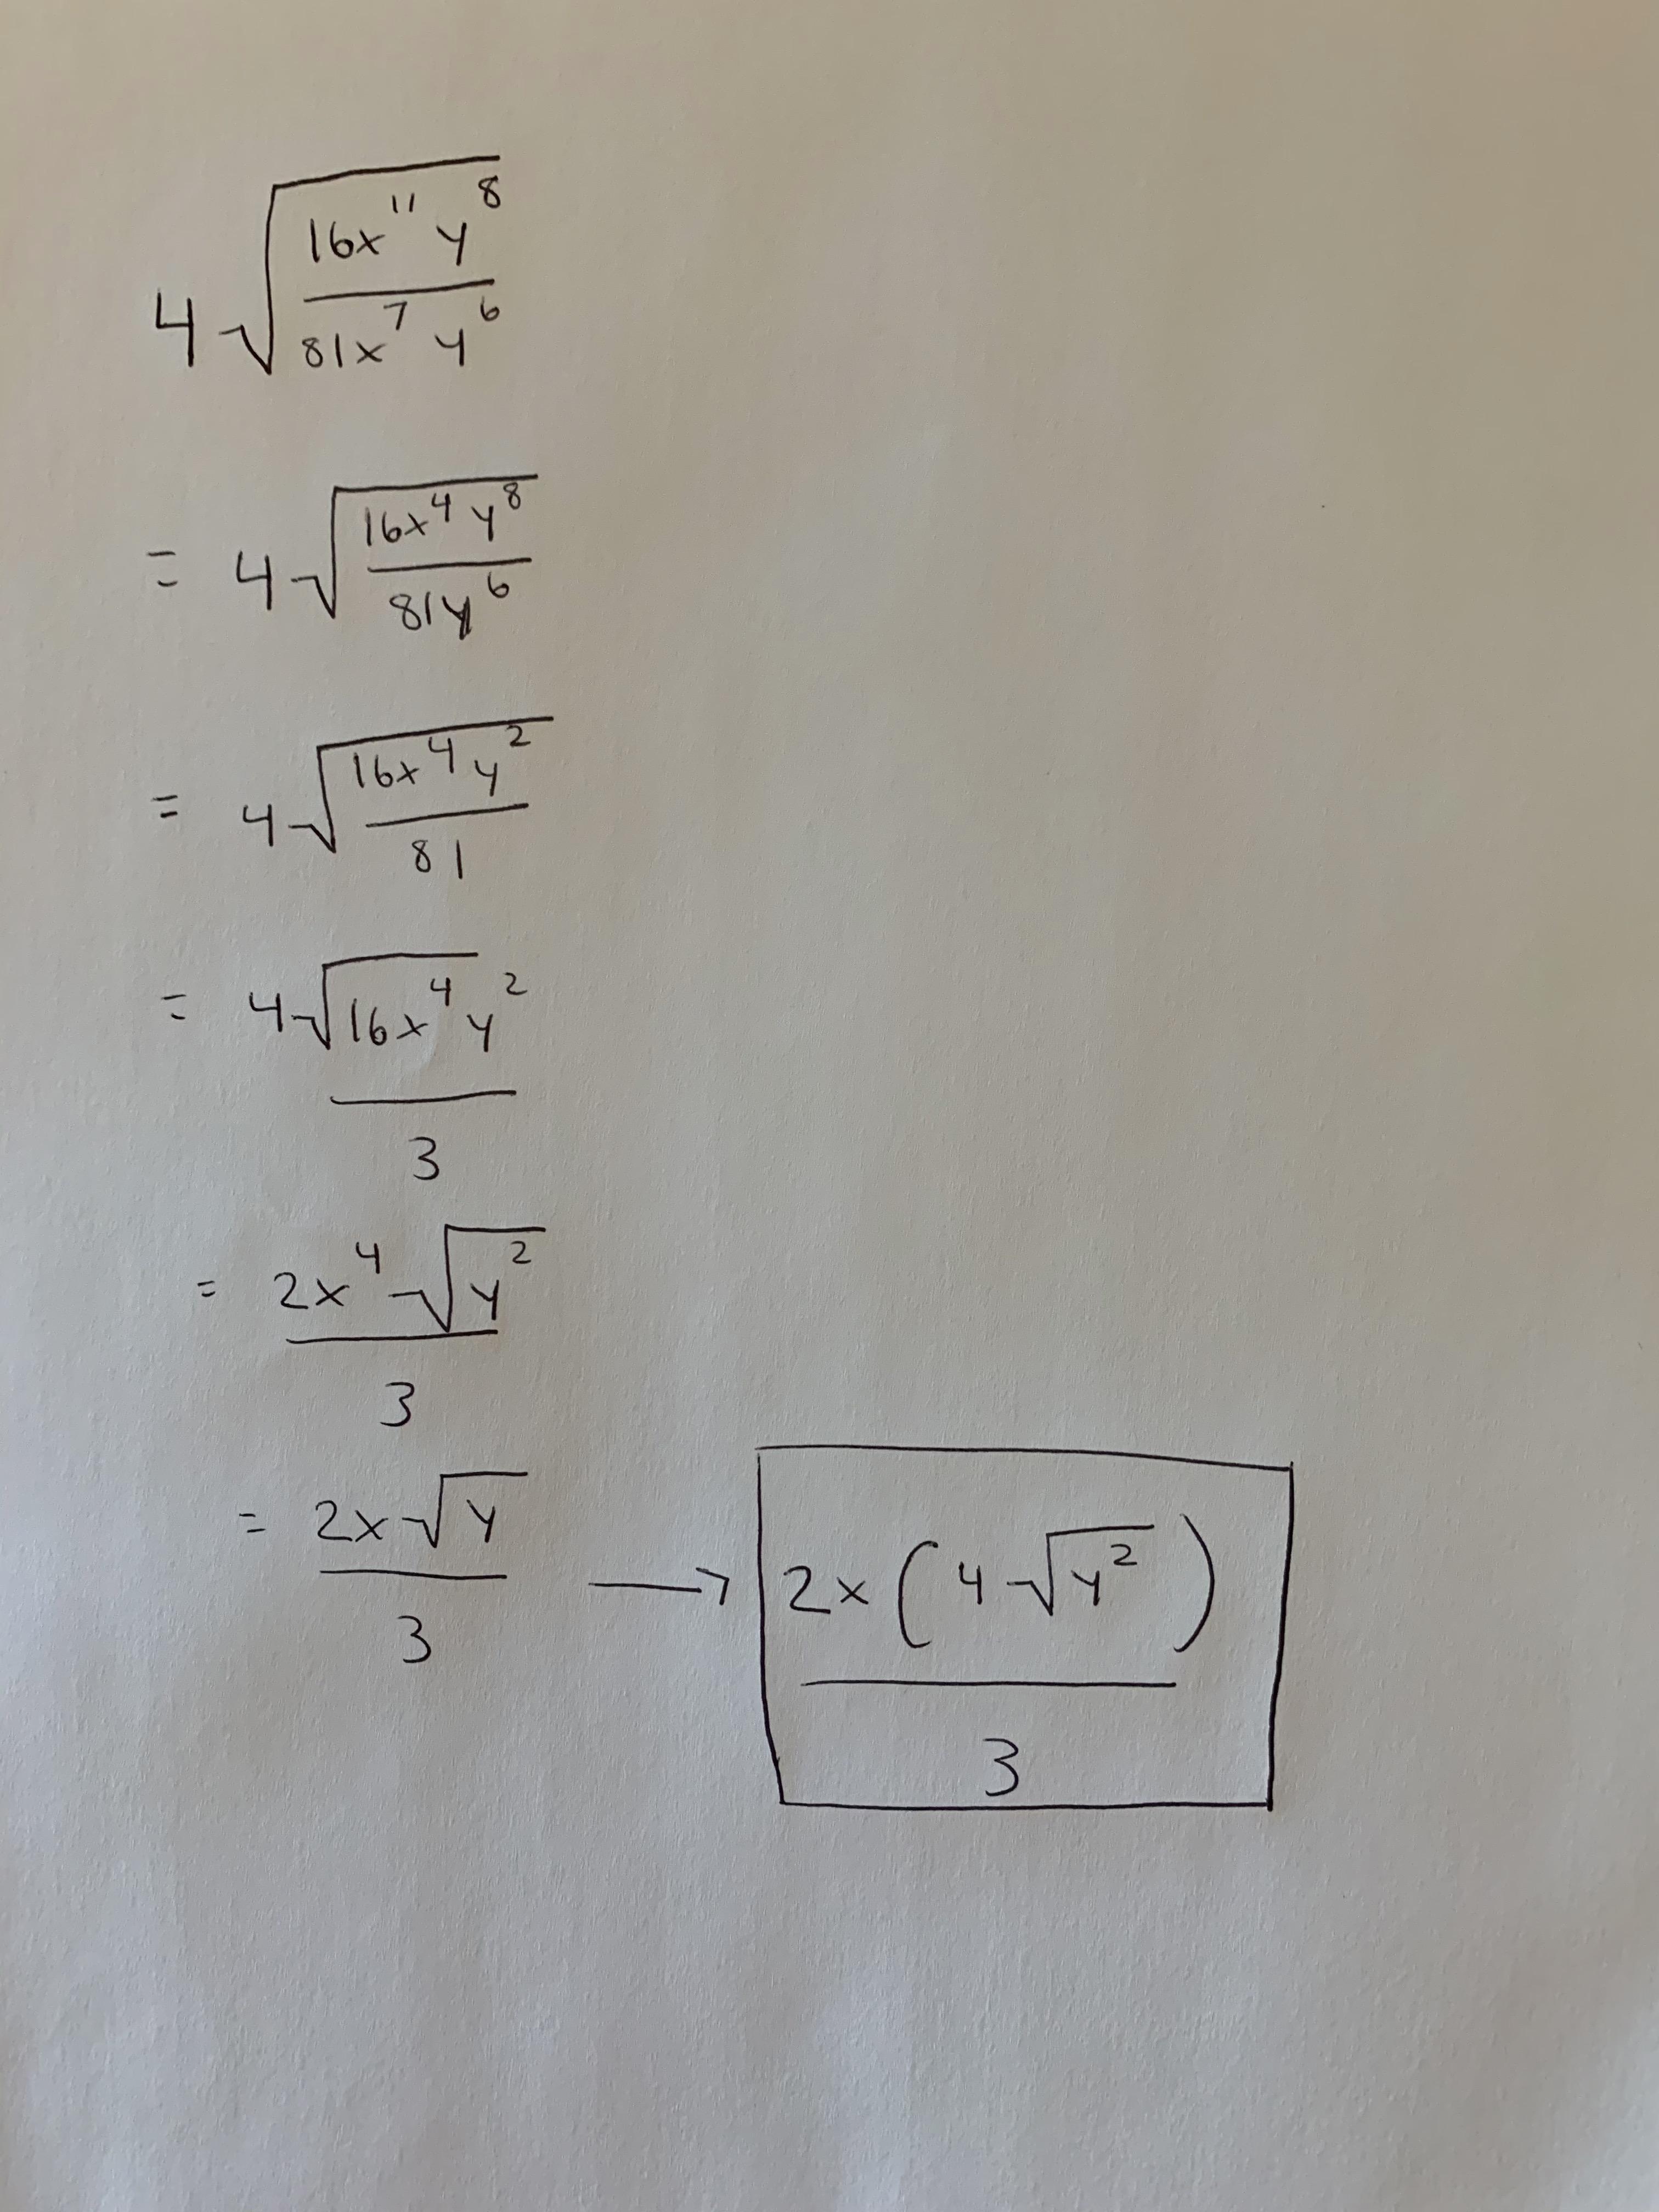 4√(16x¹¹y⁸ / 81x⁷y⁶)
= 4√(16x⁴y⁸ / 81y⁶)
= 4√(16x⁴y² / 81)
= 4√(16x⁴y²) / 3
= 2x⁴√(y²) / 3
= 2x√y / 3 → 2x(4√(y²)) / 3